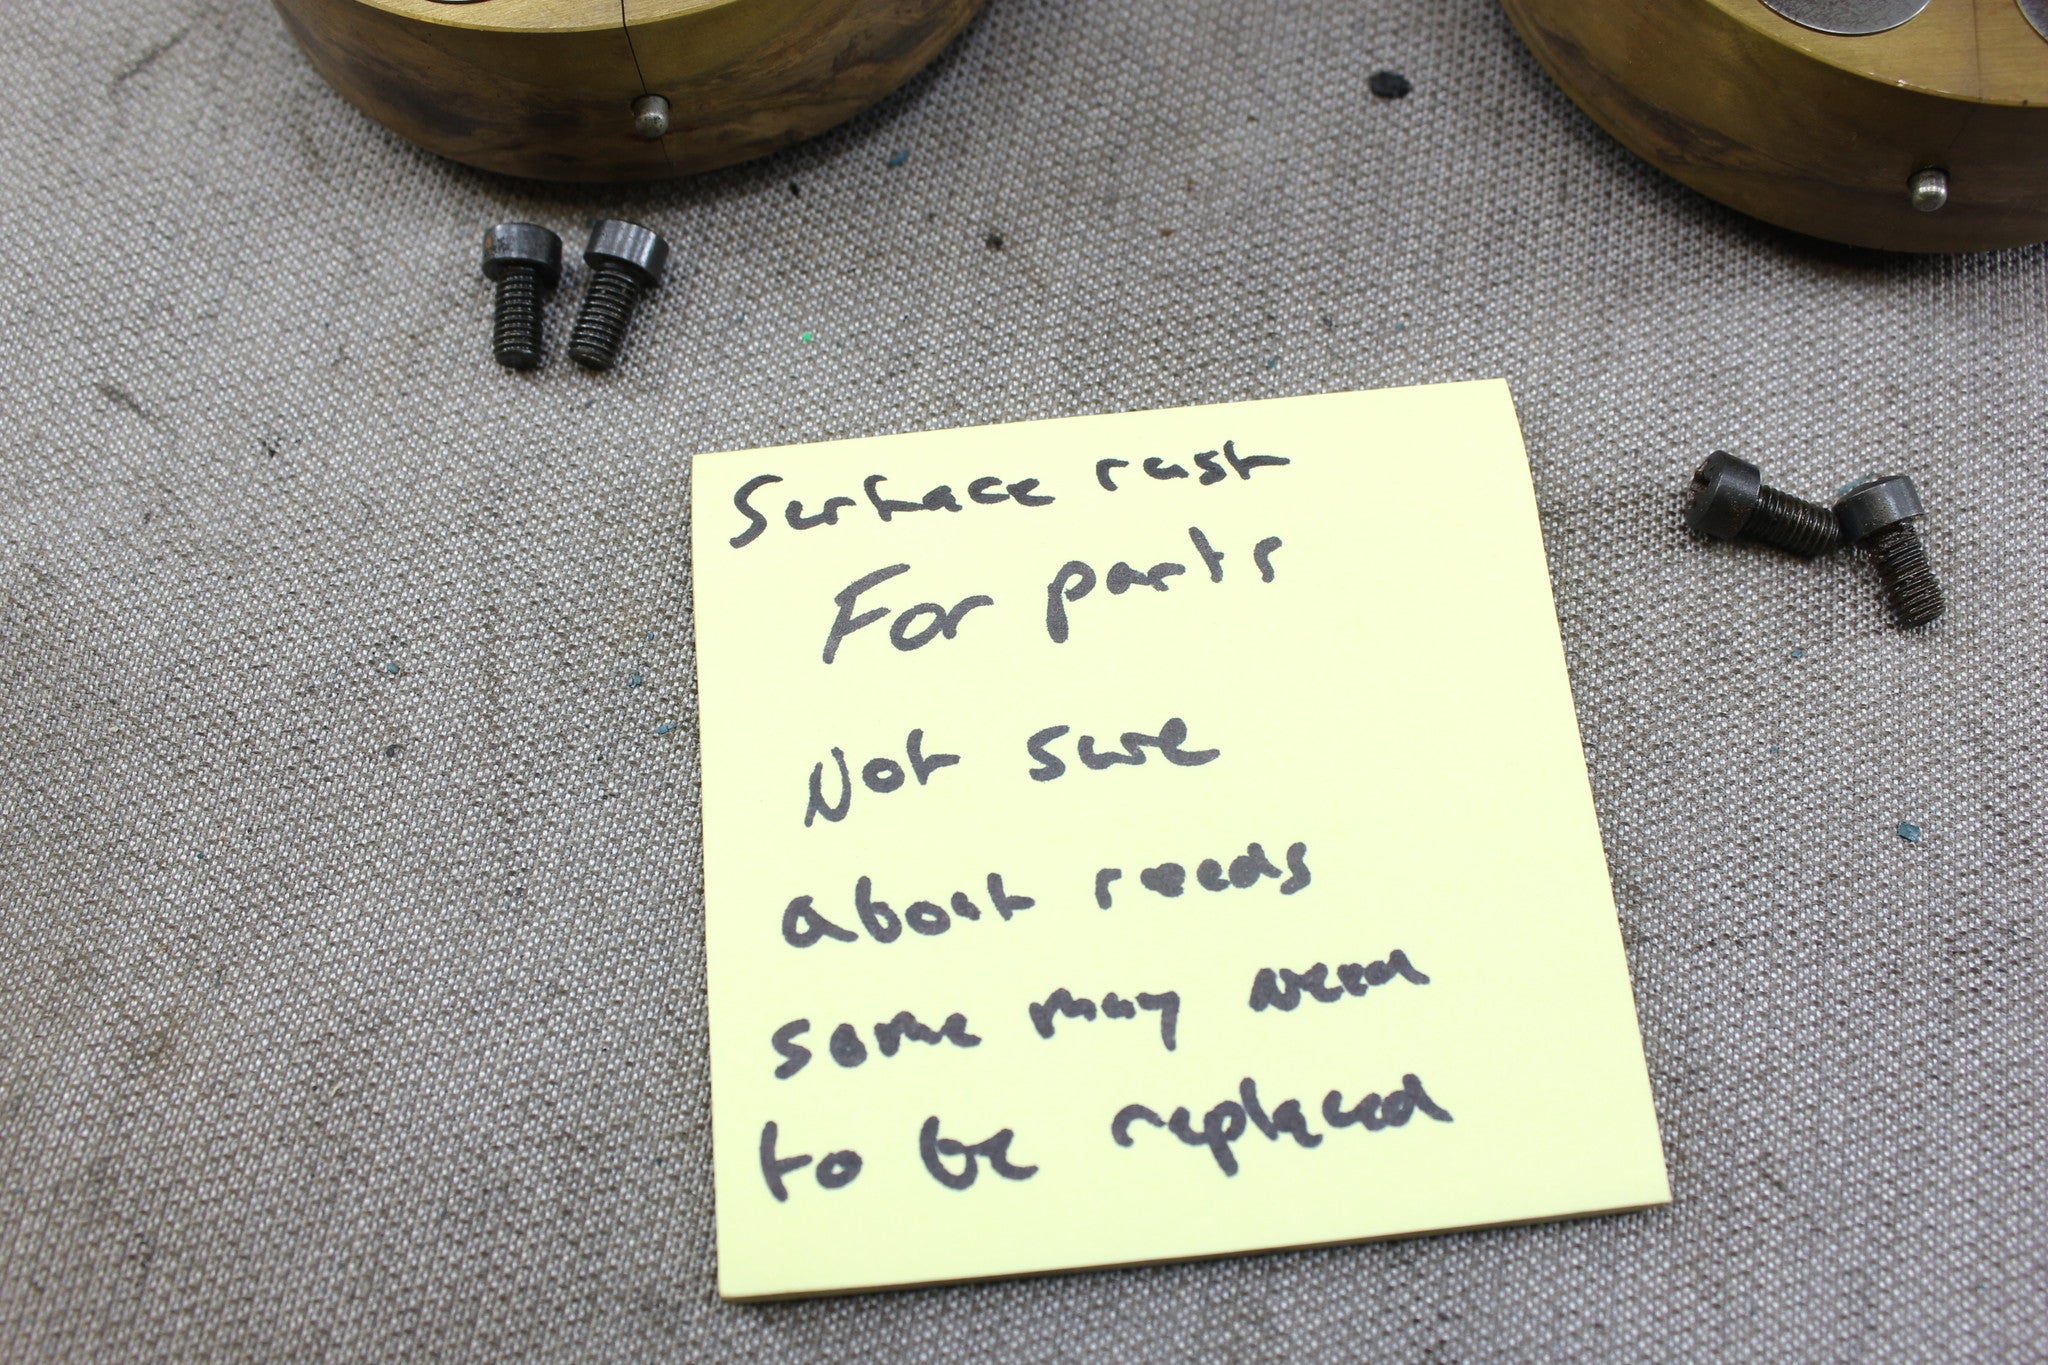 Surface rust
For parts
Not sure
about reeds
some may need
to be replaced